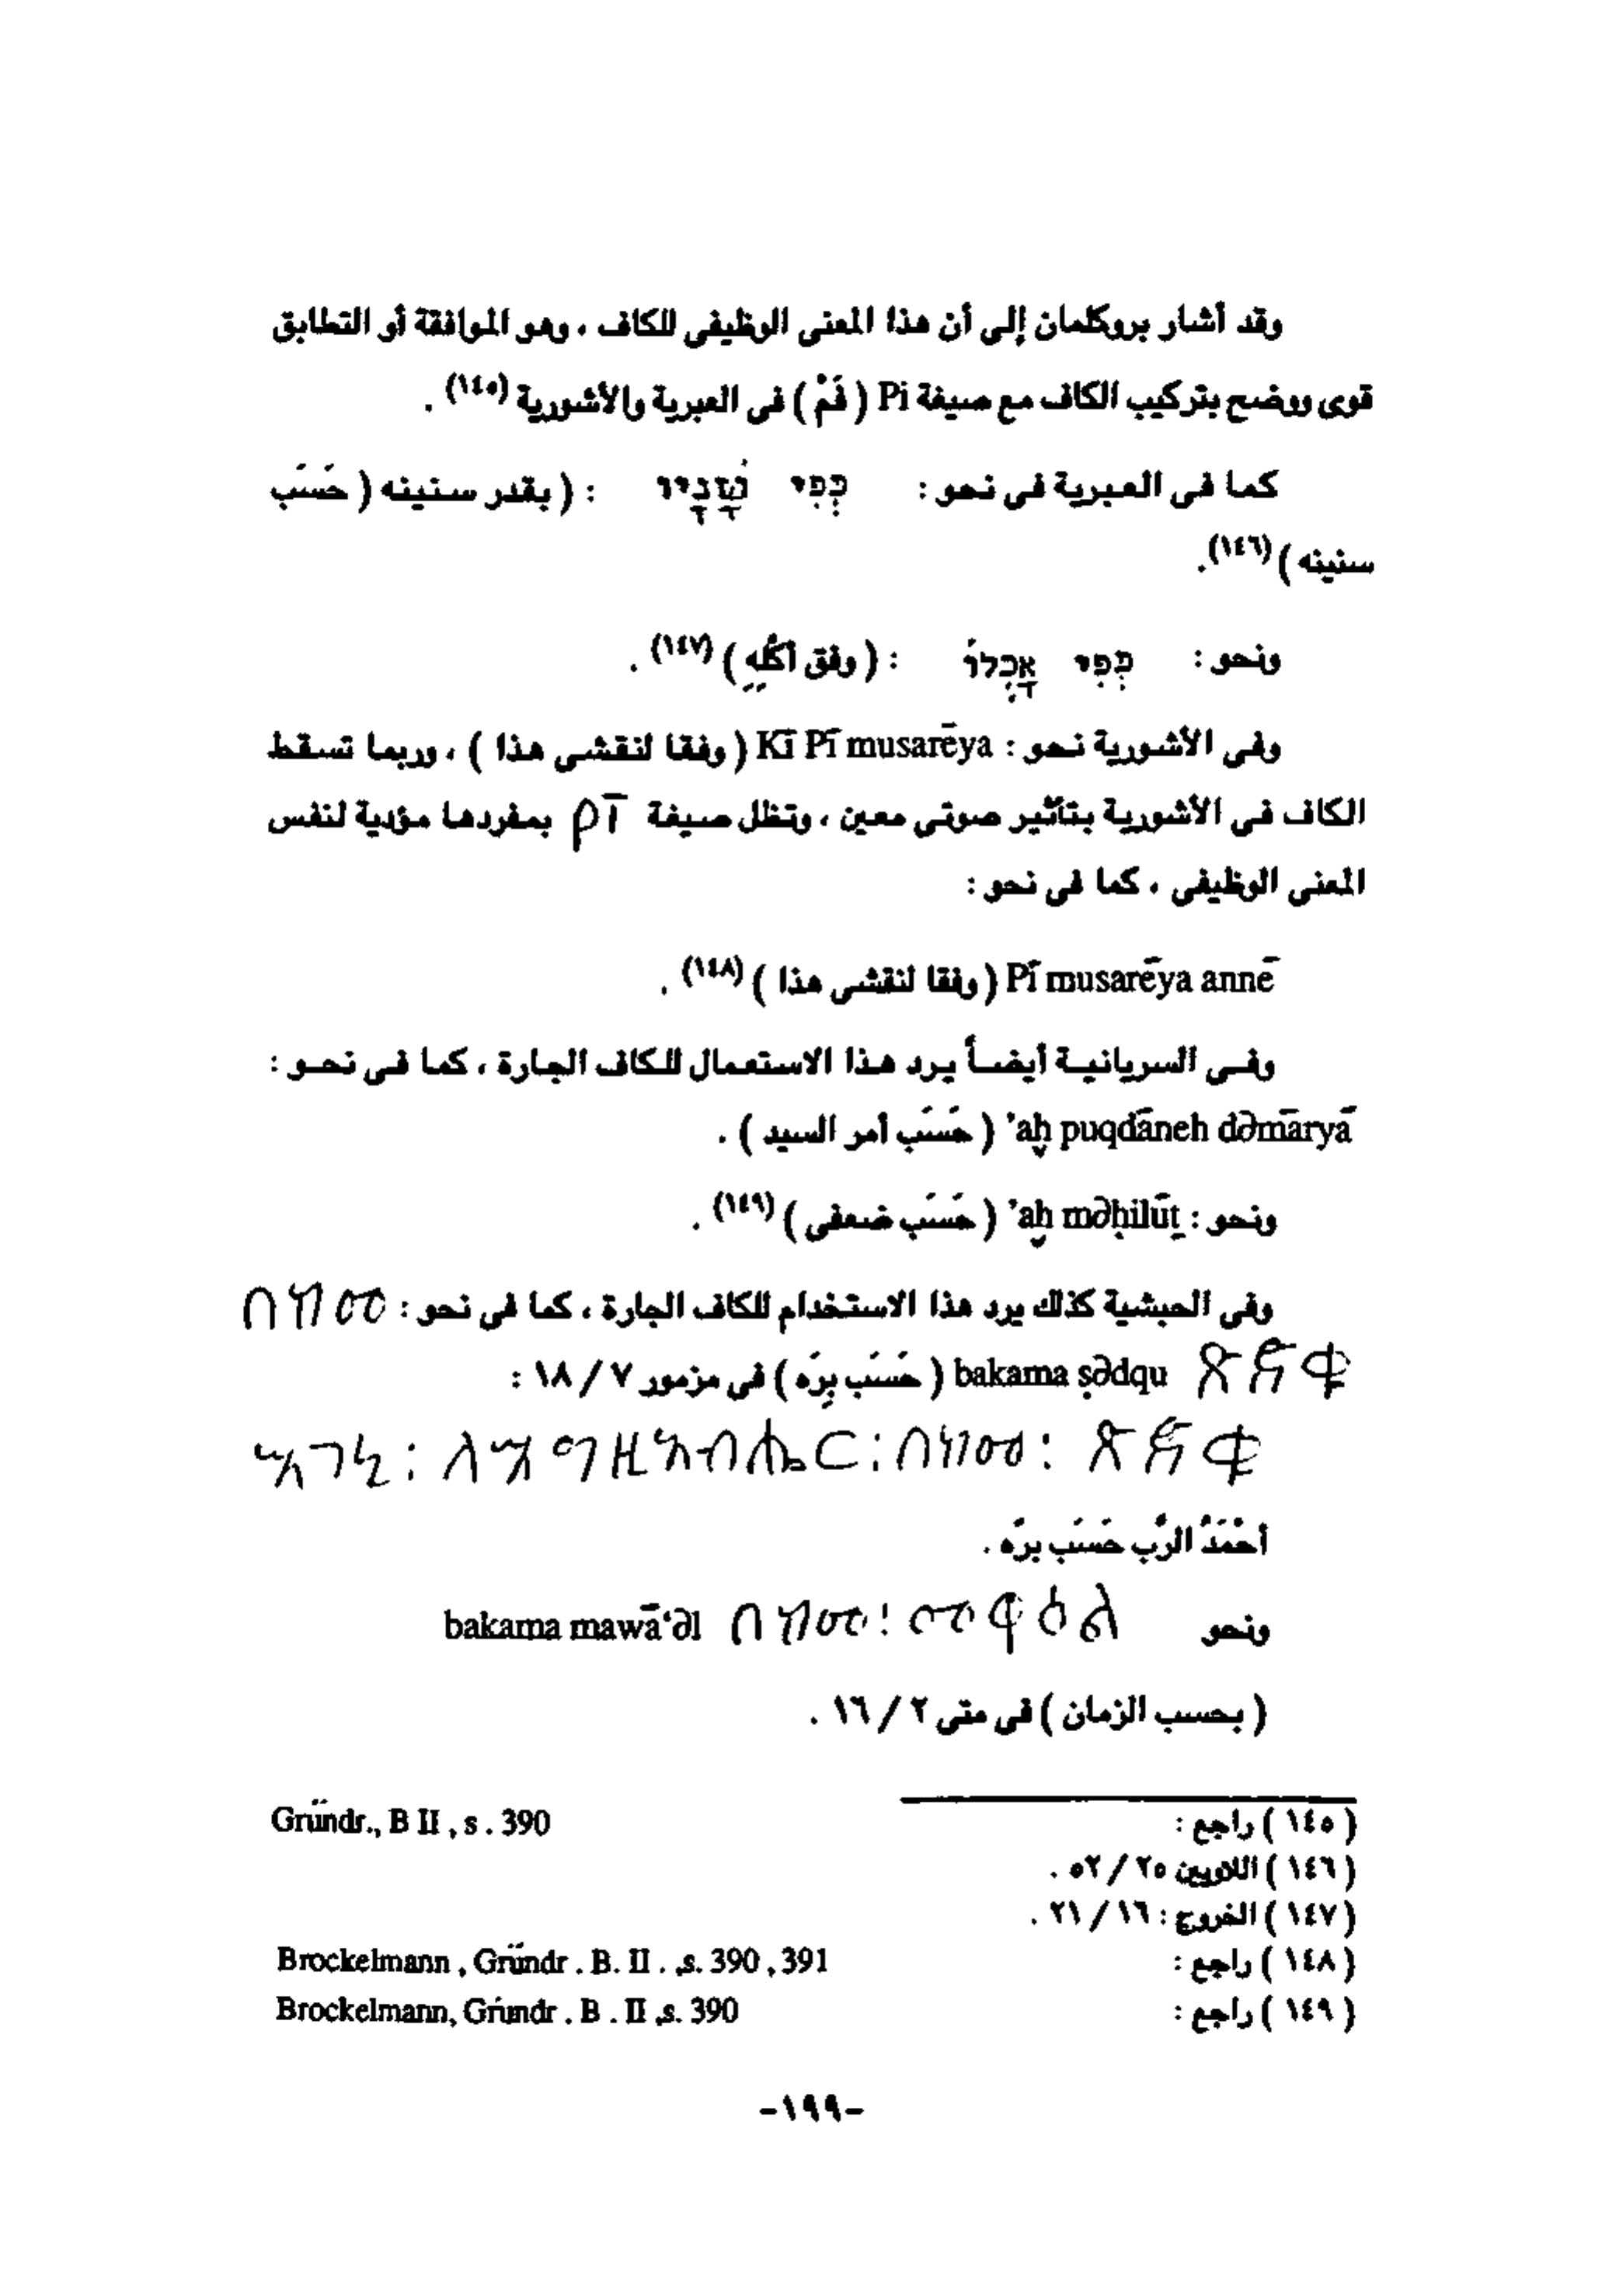 وقد أشار بروكلمان إلى أن هذا المعنى الوظيفى للكاف ، وهو الموافقة أو التطابق
قوى ووضح بتركيب الكاف مع صيغة Pi ( فَمْ ) فى العبرية والأشورية (١٤٥) .
كما فى العبرية فى نحو : כְּפִי שָׁנָיו : ( بقدر سنينه ( حَسَب
سنينه ) (١٤٦).
ونحو : כְּפִי אָכְלוֹ : ( وفق أكْلِهِ ) (١٤٧) .
وفى الأشورية نحو : Kī Pī musarēya ( وفقا لنقشى هذا ) ، وربما تسقط
الكاف فى الأشورية بتأثير صوتى معين ، وتظل صيغة pī بمفردها مؤدية لنفس
المعنى الوظيفى ، كما فى نحو :
Pī musarēya annē ( وفقا لنقشى هذا ) (١٤٨) .
وفى السريانية أيضاً يرد هذا الاستعمال للكاف الجارة ، كما فى نحو :
’aḫ puqdāneh dəmāryā ( حَسَب أمر السيد ) .
ونحو : ’aḫ məḥilūṯ ( حَسَب ضعفى ) (١٤٩) .
وفى الحبشية كذلك يرد هذا الاستخدام للكاف الجارة ، كما فى نحو : በከመ
ጽድቁ bakama ṣədqu ( حَسَب بِرَه ) فى مزمور ٧ / ١٨ :
: በከመ : ጽድቁ
أحْمَدُ الرَّب حَسَب برَه .
ونحو በከመ : መዋዕል bakama mawā‘əl
( بحسب الزمان ) فى متى ٢ / ١٦ .
( ١٤٥ ) راجع : Gründr., B II , s . 390
( ١٤٦ ) اللاويين ٢٥ / ٥٢ .
( ١٤٧ ) الخروج : ١٦ / ٢١ .
( ١٤٨ ) راجع : Brockelmann , Gründr . B. II . ,s. 390 , 391
( ١٤٩ ) راجع : Brockelmann, Gründr . B . II ,s. 390
-١٩٩-